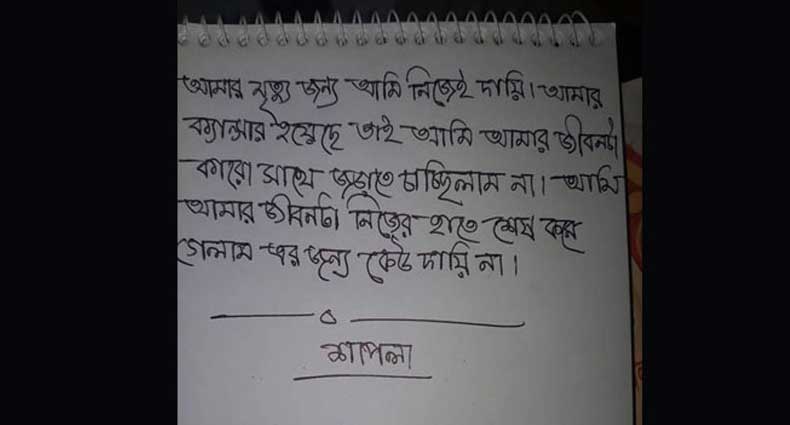 আমার মৃত্যু জন্য আমি নিজেই দায়ি। আমার
ক্যান্সার হয়েছে তাই আমি আমার জীবনটা
কারো সাথে জড়াতে চাচ্ছিলাম না। আমি
আমার জীবনটা নিজের হাতে শেষ করে
গেলাম এর জন্য কেউ দায়ি না।
শাপলা